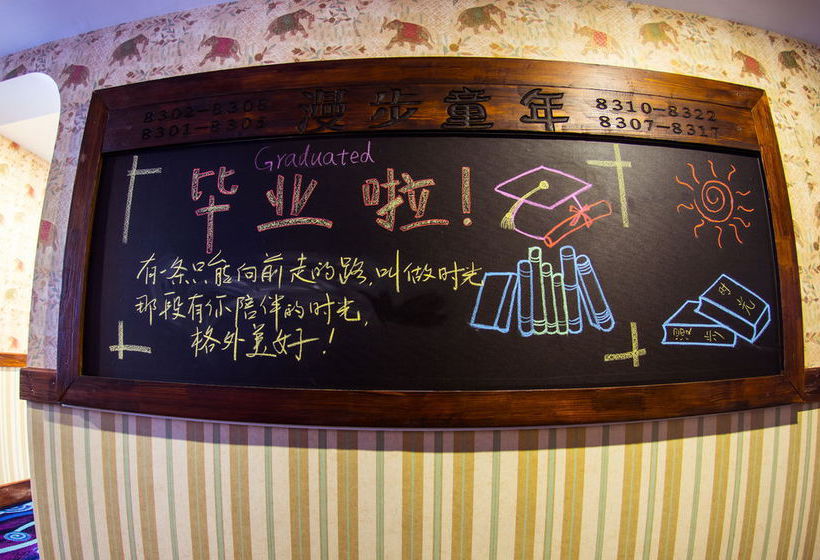 8302-8306 漫步童年 8310-8322
8301-8305 8307-8317
Graduated
毕业啦!
有一条只能向前走的路,叫做时光
那段有你陪伴的时光,
格外美好!